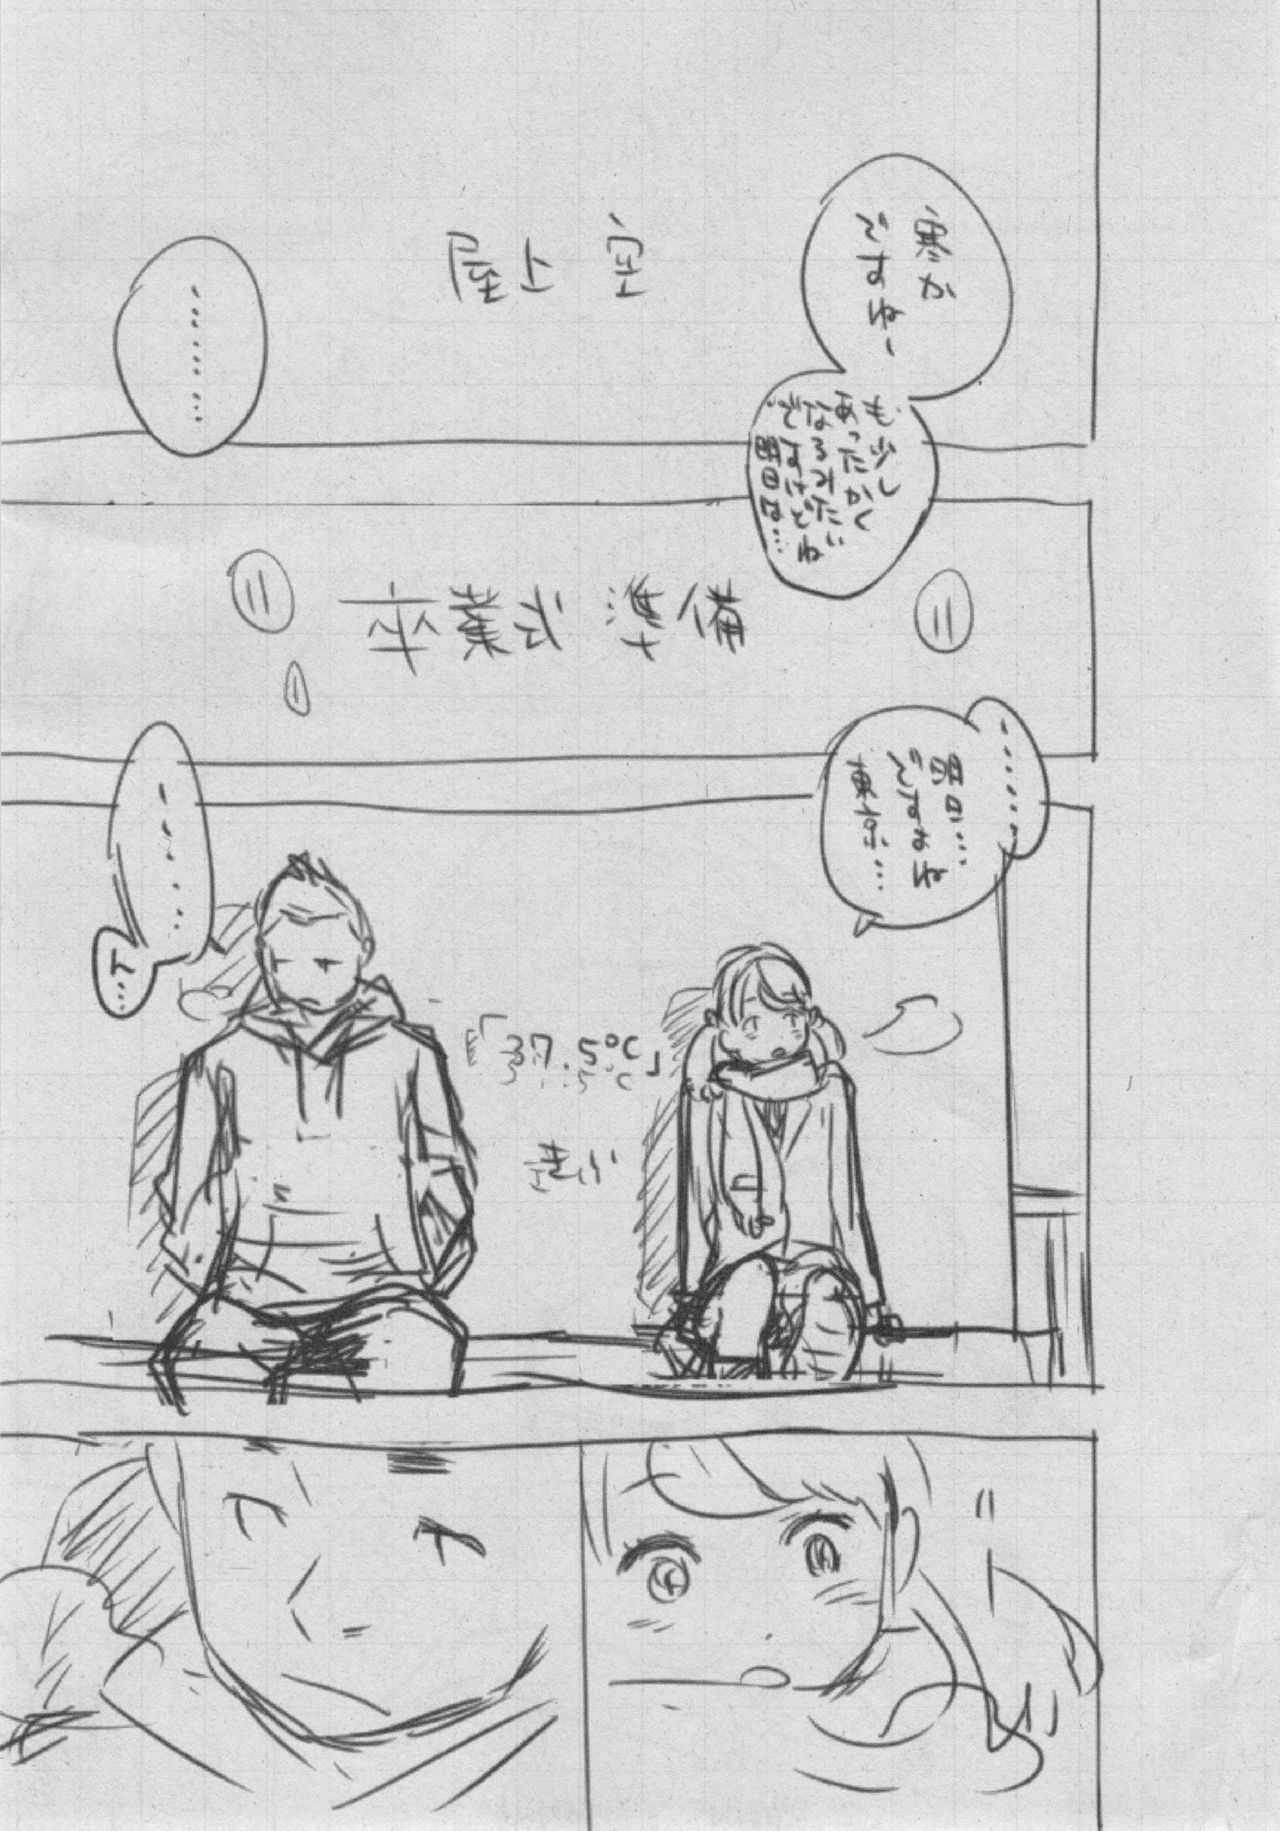 寒か
ですねー
屋上 空
も少し
あったかく
なるみたい
ですけどね
明日は…
………
卒業式準備
………
明日…
ですよね
東京…
………
ん…
「37.5℃」